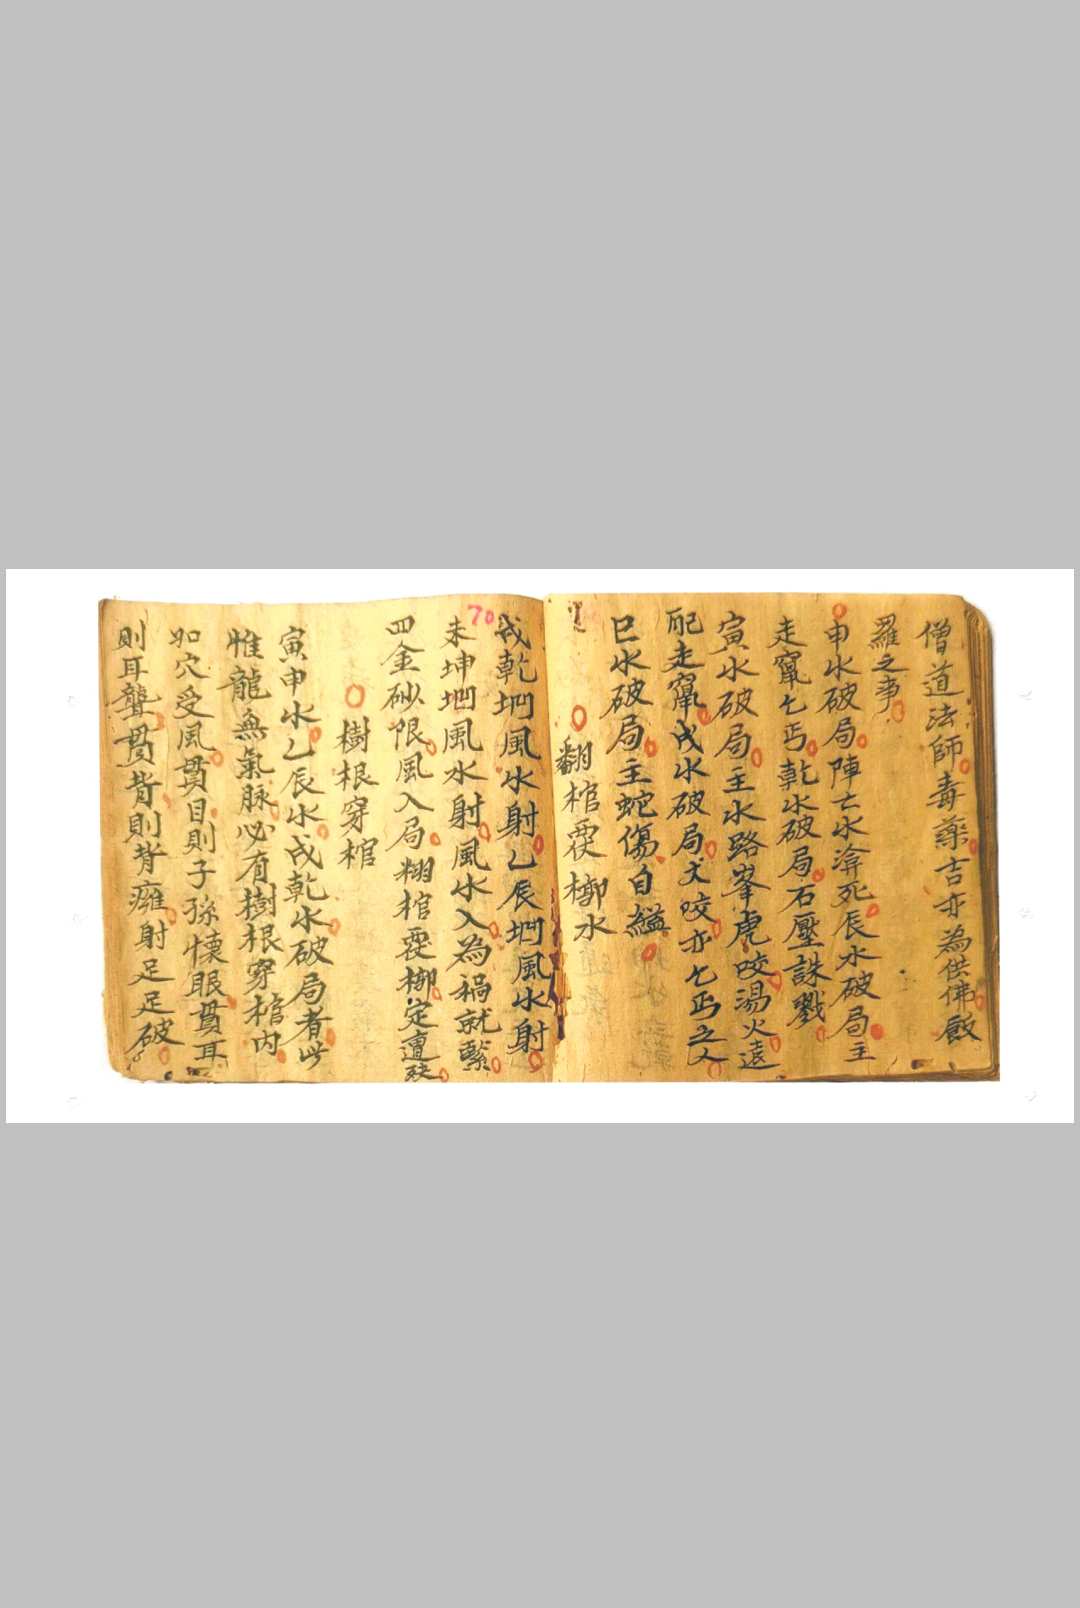 僧道法師毒藥吉亦為供佛飯
羅之事
申水破局陣亡水渰死辰水破局主
走竄乞丐乾水破局石壓誅戮
寅水破局主水路峯虎咬湯火遠
配走竄戌水破局犬咬亦乞丐之人
巳水破局主蛇傷自縊
翻棺覆槨水
戌乾坳風水射乙辰坳風水射
未坤坳風水射風水入為禍就繫
四金砂限風入局翻棺覆槨定遭殃
樹根穿棺
寅申水乙辰水戌乾水破局者此
惟龍無氣脉必有樹根穿棺內
如穴受風貫目則子孫懷眼貫耳
則耳聾貫背則背癰射足足破
70